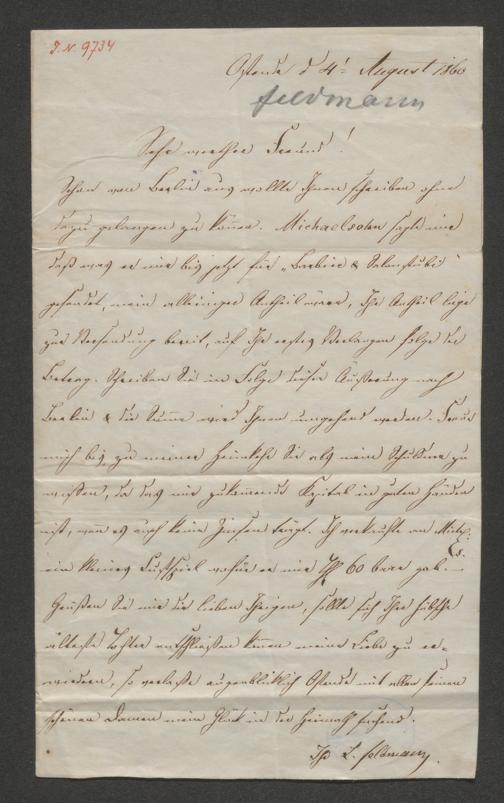 J. N. 9734
Ostende d 4t August 1860
Feldmann
Sehr werther Freund!
Schon von Berlin aus wollte Ihnen schreiben ohne
dazu gelangen zu können. Michaelsohn sagte mir
daß was er mir bis jetzt für „Barbier &
gesendet, mein alleiniger Antheil wäre, Ihr Antheil liege
zur Versendung bereit, auf Ihr erstes Verlangen folge der
Betrag. Schreiben Sie in Folge dieser Äußerung nach
Berlin & die Summe wird Ihnen umgehend werden. Freue
mich bis zu meiner Heimkehr Sie als mein Schuldner zu
wissen, da das mir zukommende Kapital in guten Händen
ist, wenn es auch keine Zinsen trägt. Ich verkaufte an Mich.
ein kleines Lustspiel wofür er mir 60 baar gab.
Grüßen Sie mir die lieben Ihrigen, sollte sich Ihre hübsche
älteste Tochter entschließen können meine Liebe zu er-
wiedern, so verlasse augenblicklich Ostende mit allen seinen
schönen Damen mein Glück in der Heimath suchend.
Ihr L. Feldmann